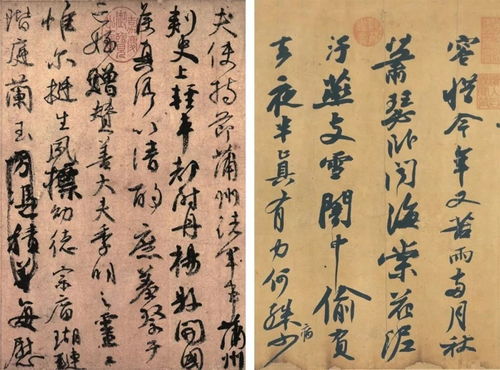 夫使持節蒲州諸軍事蒲州
刺史上輕車都尉丹楊縣開國
侯真卿以清酌庶羞祭于
亡姪贈贊善大夫季明之靈
惟爾挺生夙標幼德宗廟瑚璉
階庭蘭玉方憑積善每慰
容惜今年又苦雨兩月秋
蕭瑟臥聞海棠花泥
汙燕支雪闇中偷負
去夜半真有力何殊少
病